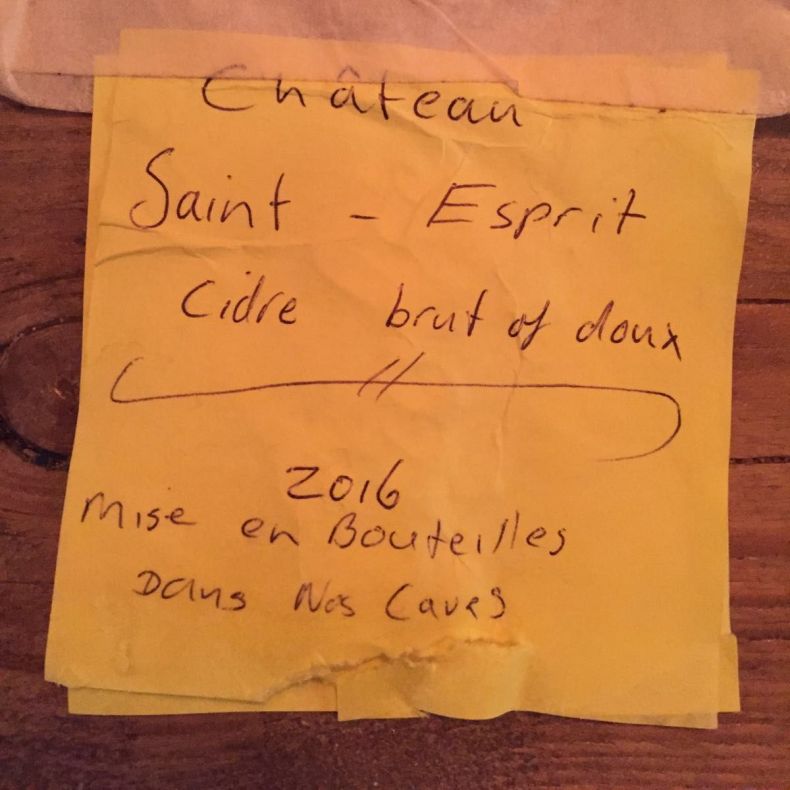 Château
Saint - Esprit
Cidre brut of doux
2016
Mise en Bouteilles
Dans Nos Caves